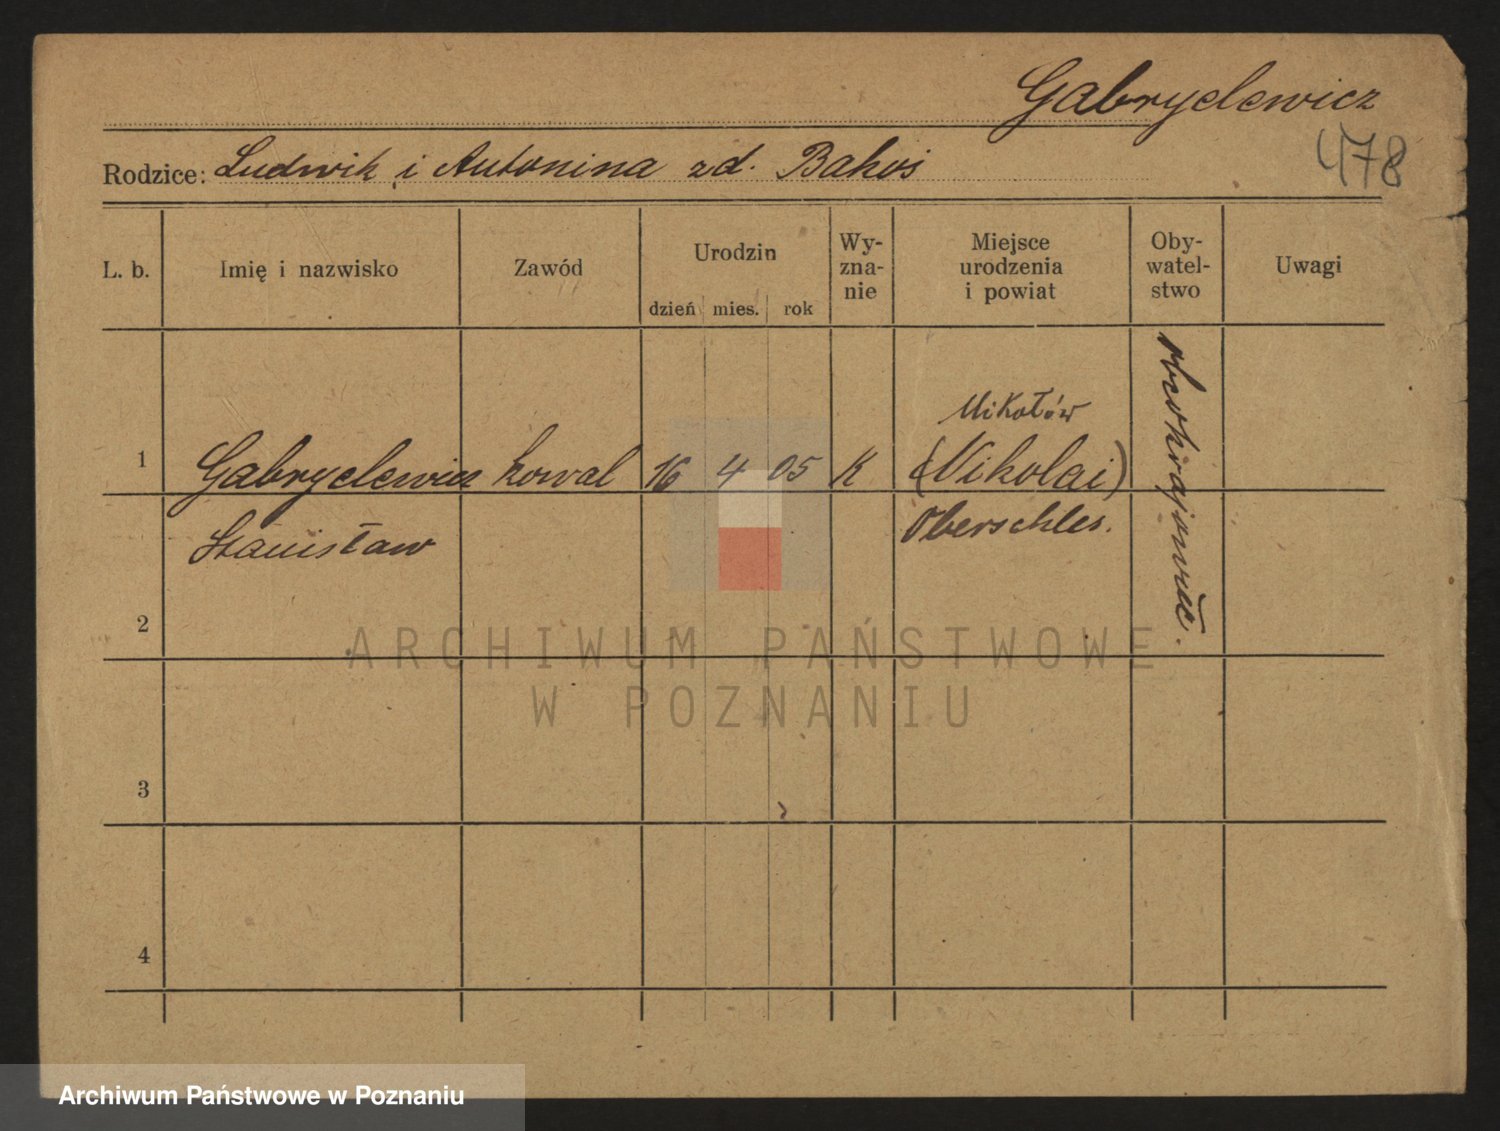 Gabryelewicz
478
Rodzice: Ludwik i Antonina zd. Bakoś
L. b.
Imię i nazwisko
Zawód
Urodzin
dzień mies. rok
Wy-
zna-
nie
Miejsce
urodzenia
i powiat
Oby-
watel-
stwo
Uwagi
1
Gabryelewicz
Stanisław
kowal
16 4 05
K
Mikołów
(Nikolai)
Oberschles.
2
3
4
ARCHIWUM PAŃSTWOWE
W POZNANIU
Archiwum Państwowe w Poznaniu